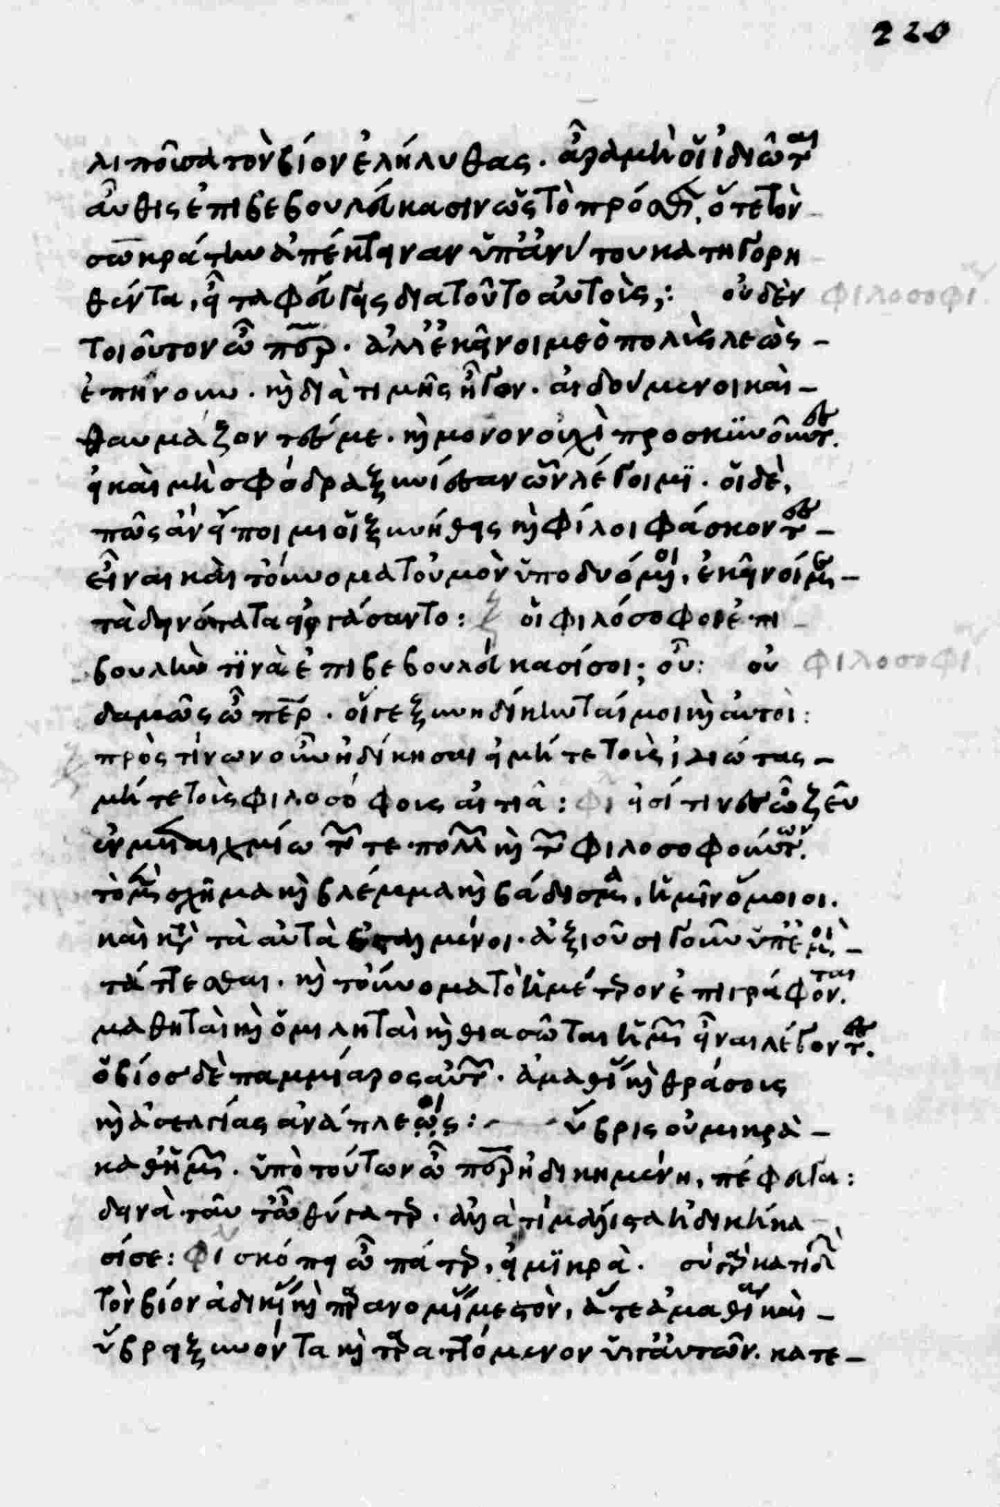 220
λιποῦσα τὸν βίον ἐλήλυθας. ἆρα μὴ οἱ ἰδιῶται
αὖθις ἐπιβεβουλεύκασιν ὡς τὸ πρόσθεν, ὅτε τὸν
σωκράτην ἀπέκτειναν ὑπ' ἀνύτου κατηγορη
θέντα, ἢ τα φεύγεις διατοῦτο αὐτούς;: οὐδὲν
τοιοῦτον ὦ πάτερ. ἀλλ' ἐκεῖνοι μὲ ὁ πολὺς λεὼς
ἐπῄνουν. καὶ διὰ τιμῆς ἦγον. αἰδούμενοι καὶ
θαυμάζοντές με. καὶ μονονουχὶ προσκυνοῦντες.
εἰ καὶ μὴ σφόδρα ξυνίεσαν ὧν λέγοιμι. οἱ δὲ,
πῶς ἂν εἴποιμι οἱ ξυνήθεις καὶ φίλοι φάσκοντες
εἶναι καὶ τοὔνομα τοὐμὸν ὑποδυόμενοι, ἐκεῖνοί με
τὰ δεινότατα εἰργάσαντο: οἱ φιλόσοφοι ἐπι
βουλήν τινὰ ἐπιβεβουλεύκασί σοι; οὐ: οὐ
δαμῶς ὦ πάτερ. οἵ γε ξυνηδίκηνταί μοι καὶ αὐτοί:
πρὸς τίνων οὖν ἠδίκησαι εἰ μήτε τοὺς ἰδιώτας
μήτε τοὺς φιλοσόφους αἰτιᾷ: φι εἰσί τινες ὦ ζεῦ
ἐν μεταιχμίῳ τῶν τε πολλῶν καὶ τῶν φιλοσοφούντων.
τὸ μὲν σχῆμα καὶ βλέμμα καὶ βάδισμα, ἡμῖν ὅμοιοι.
καὶ κατὰ τὰ αὐτὰ ἐσταλμένοι. ἀξιοῦσι γοῦν ὑπ' ἐμοὶ
τάττεσθαι. καὶ τοὔνομα τὸ ἡμέτερον ἐπιγράφονται.
μαθηταὶ καὶ ὁμιληταὶ καὶ θιασῶται ἡμῶν εἶναι λέγοντες.
ὁ βίος δὲ παμμίαρος αὐτῶν. ἀμαθίας καὶ θράσους
καὶ ἀσελγίας ἀνάπλεως: ὕβρις οὐ μικρὰ
καθ' ἡμῶν. ὑπὸ τούτων ὦ πάτερ ἠδικημένη, πέφευγα:
δεινὰ ταῦτα ὦ θύγατερ. ἀλλὰ τί μάλιστα ἠδικήκα
σί σε: φι σκόπει ὦ πάτερ, εἰ μικρὰ. σὺ γὰρ κατιδὼν
τὸν βίον ἀδικίας καὶ παρανομίας μεστὸν, ἅτε ἀμαθίᾳ καὶ
ὕβρει ξυνόντα καὶ ταραττόμενον ὑπ' αὐτῶν. κατε
φιλοσοφι
φιλοσοφι